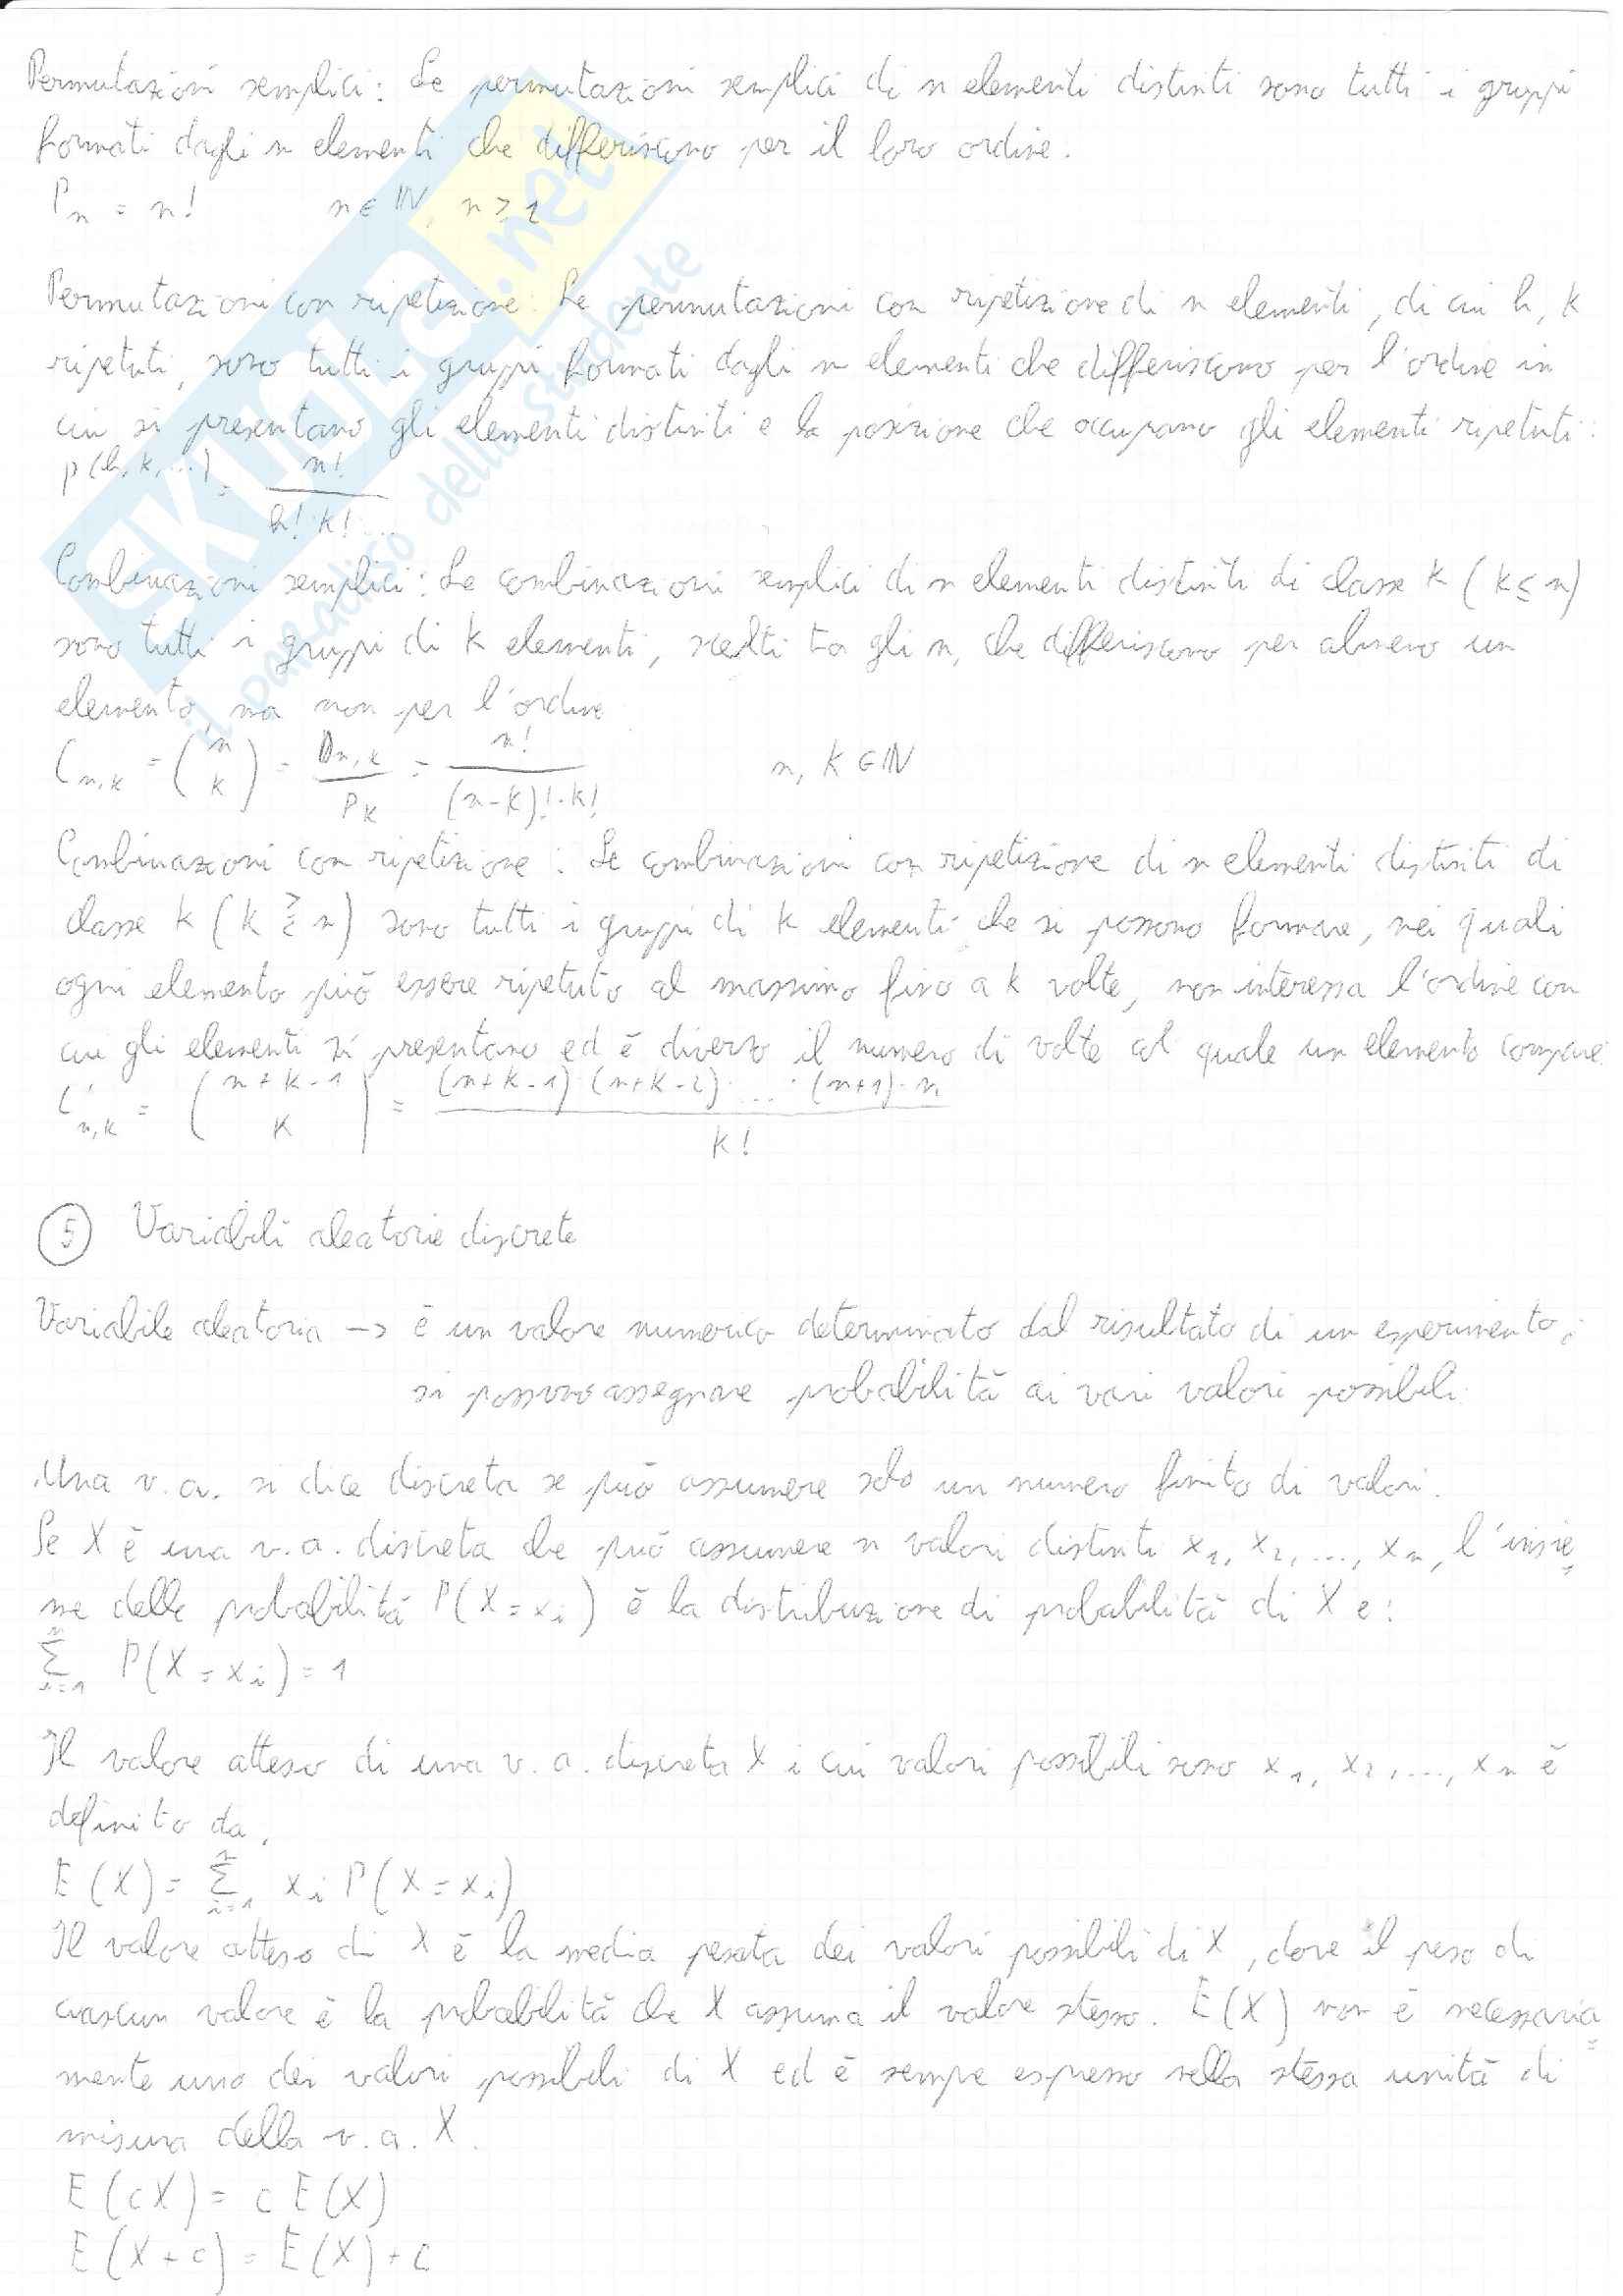 Permutazioni semplici: Le permutazioni semplici di n elementi distinti sono tutti i gruppi
formati dagli n elementi che differiscono per il loro ordine.
Pn = n! n ∈ ℕ, n ≥ 1
Permutazioni con ripetizione: Le permutazioni con ripetizione di n elementi, di cui h, k
ripetuti, sono tutti i gruppi formati dagli n elementi che differiscono per l'ordine in
cui si presentano gli elementi distinti e la posizione che occupano gli elementi ripetuti:
P(h, k, ...) = n! / h! · k! ...
Combinazioni semplici: Le combinazioni semplici di n elementi distinti di classe k (k ≤ n)
sono tutti i gruppi di k elementi, scelti tra gli n, che differiscono per almeno un
elemento, ma non per l'ordine
C n,k = (n k) = D n,k / P k = n! / (n-k)! · k! n, k ∈ ℕ
Combinazioni con ripetizione: Le combinazioni con ripetizione di n elementi distinti di
classe k (k ⪌ n) sono tutti i gruppi di k elementi che si possono formare, nei quali
ogni elemento può essere ripetuto al massimo fino a k volte, non interessa l'ordine con
cui gli elementi si presentano ed è diverso il numero di volte col quale un elemento compare
C' n,k = (n+k-1 k) = (n+k-1) · (n+k-2) · ... · (n+1) · n / k!
5 Variabili aleatorie discrete
Variabile aleatoria -> è un valore numerico determinato dal risultato di un esperimento;
si possono assegnare probabilità ai vari valori possibili.
Una v.a. si dice discreta se può assumere solo un numero finito di valori.
Se X è una v.a. discreta che può assumere n valori distinti x1, x2, ..., xn, l'insie
me delle probabilità P(X = xi) è la distribuzione di probabilità di X e:
n Σ i=1 P(X = xi) = 1
Il valore atteso di una v.a. discreta X i cui valori possibili sono x1, x2, ..., xn è
definito da:
E(X) = n Σ i=1 xi P(X = xi)
Il valore atteso di X è la media pesata dei valori possibili di X, dove il peso di
ciascun valore è la probabilità che X assuma il valore stesso. E(X) non è necessaria
mente uno dei valori possibili di X ed è sempre espresso nella stessa unità di
misura della v.a. X.
E(cX) = c E(X)
E(X+c) = E(X) + c
SKUOLA.net
il paradiso dello studente